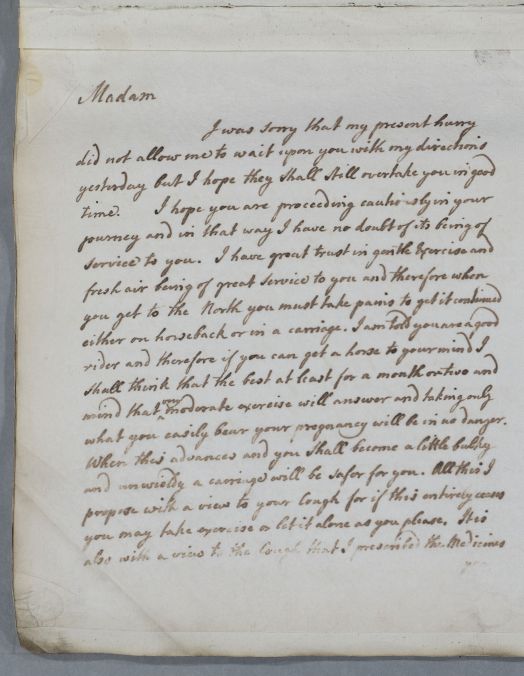 Madam
I was sorry that my present hurry
did not allow me to wait upon you with my directions
yesterday but I hope they shall still overtake you in good
time. I hope you are proceeding cautiously in your
journey and in that way I have no doubt of its being of
service to you. I have great trust in gentle Exercise and
fresh air being of great service to you and therefore when
you get to the North you must take pains to get it continued
either on horseback or in a carriage. I am told you are a good
rider and therefore if you can get a horse to your mind I
shall think that the best at least for a month or two and
mind that very moderate exercise will answer and taking only
what you easily bear your pregnancy will be in no danger.
When this advances and you shall become a little bulky
and unwieldy a carriage will be safer for you. All this I
propose with a view to your Cough for if this entirely ceases
you may take exercise or let it alone as you please. It is
also with a view to the Cough that I prescribed the Medicines
you